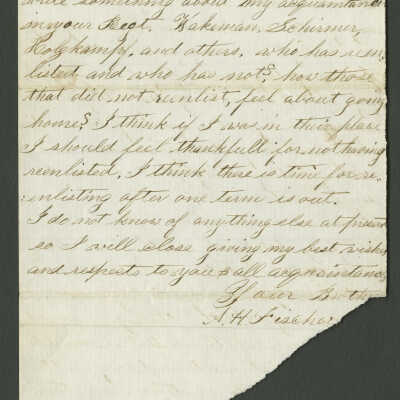 write something about my acquaintance
in your Regt. Wakeman, Schirmer,
Holzkampf, and others, who has reen-
listed, and who has not? how those
that did not reenlist, feel about going
home? I think if I was in their place
I should feel thankfull for not having
reenlisted, I think there is time for re-
enlisting after one term is out.
I do not know of anything else at present
so I will close giving my best wishes
and respects to you & all acquaintance
Your Brother
A. H. Fischer